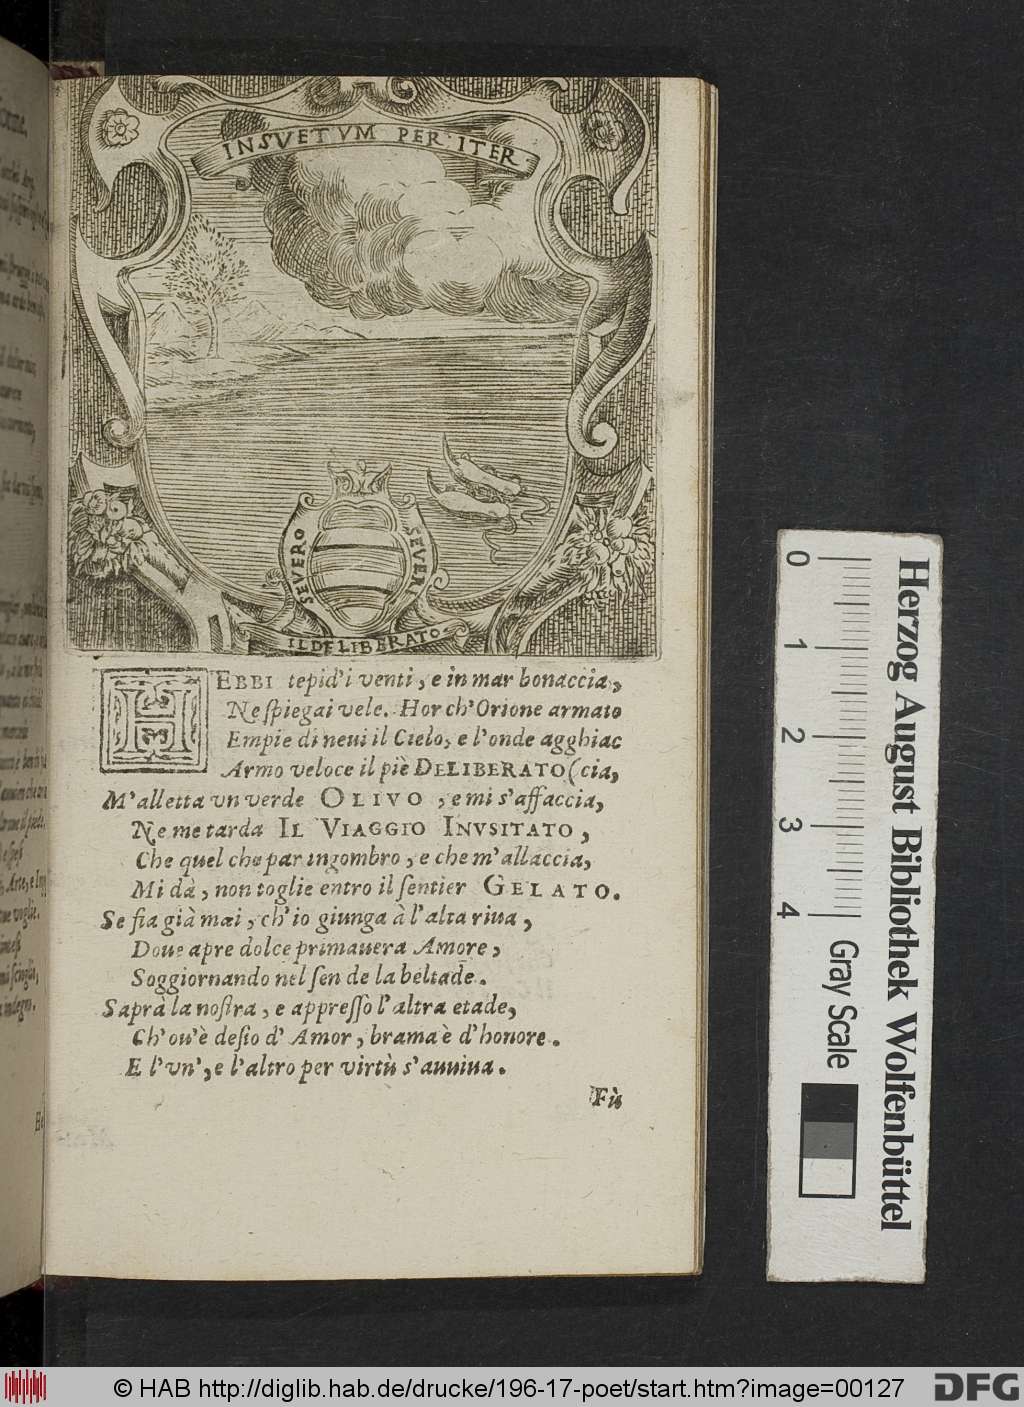 INSVETVM PER ITER
SEVERO SEVERI
IL DELIBERATO
HEBBI tepid'i venti, e in mar bonaccia,
Ne spiegai vele. Hor ch'Orione armato
Empie di neui il Cielo, e l'onde agghiac
Armo veloce il piè DELIBERATO (cia,
M'alletta vn verde OLIVO, e mi s'affaccia,
Ne me tarda IL VIAGGIO INVSITATO,
Che quel che par ingombro, e che m'allaccia,
Mi dà, non toglie entro il sentier GELATO.
Se fia già mai, ch'io giunga à l'alta riua,
Doue apre dolce primauera Amore,
Soggiornando nel sen de la beltade.
Saprà la nostra, e appresso l'altra etade,
Ch'ou'è desio d'Amor, brama è d'honore.
E l'vn', e l'altro per virtù s'auuiua.
Fù
0 1 2 3 4
Gray Scale
Herzog August Bibliothek Wolfenbüttel
© HAB http://diglib.hab.de/drucke/196-17-poet/start.htm?image=00127
DFG